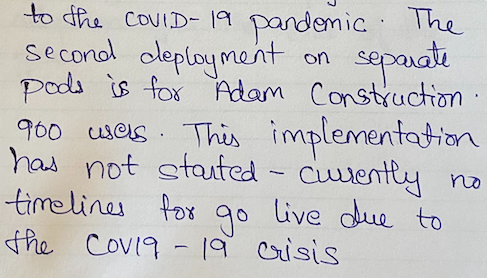 to the COVID-19 pandemic. The
second deployment on separate
pods is for Adam Construction.
900 users. This implementation
has not started - currently no
timelines for go live due to
the COVI9 - 19 crisis